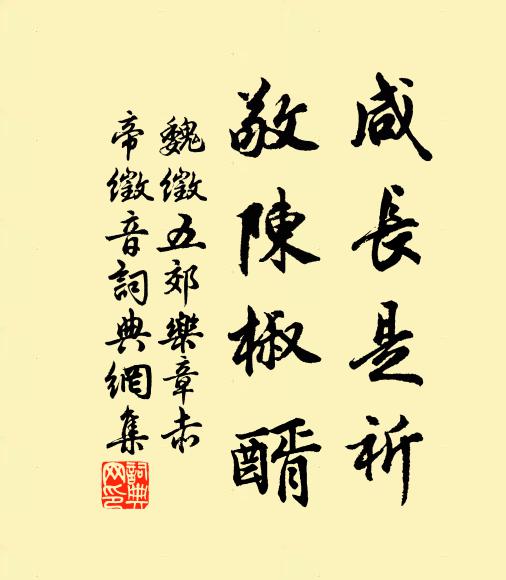 咸長是祈
敬陳椒醑
魏徵五郊樂章赤
帝徵音詞典網集
詞典網印